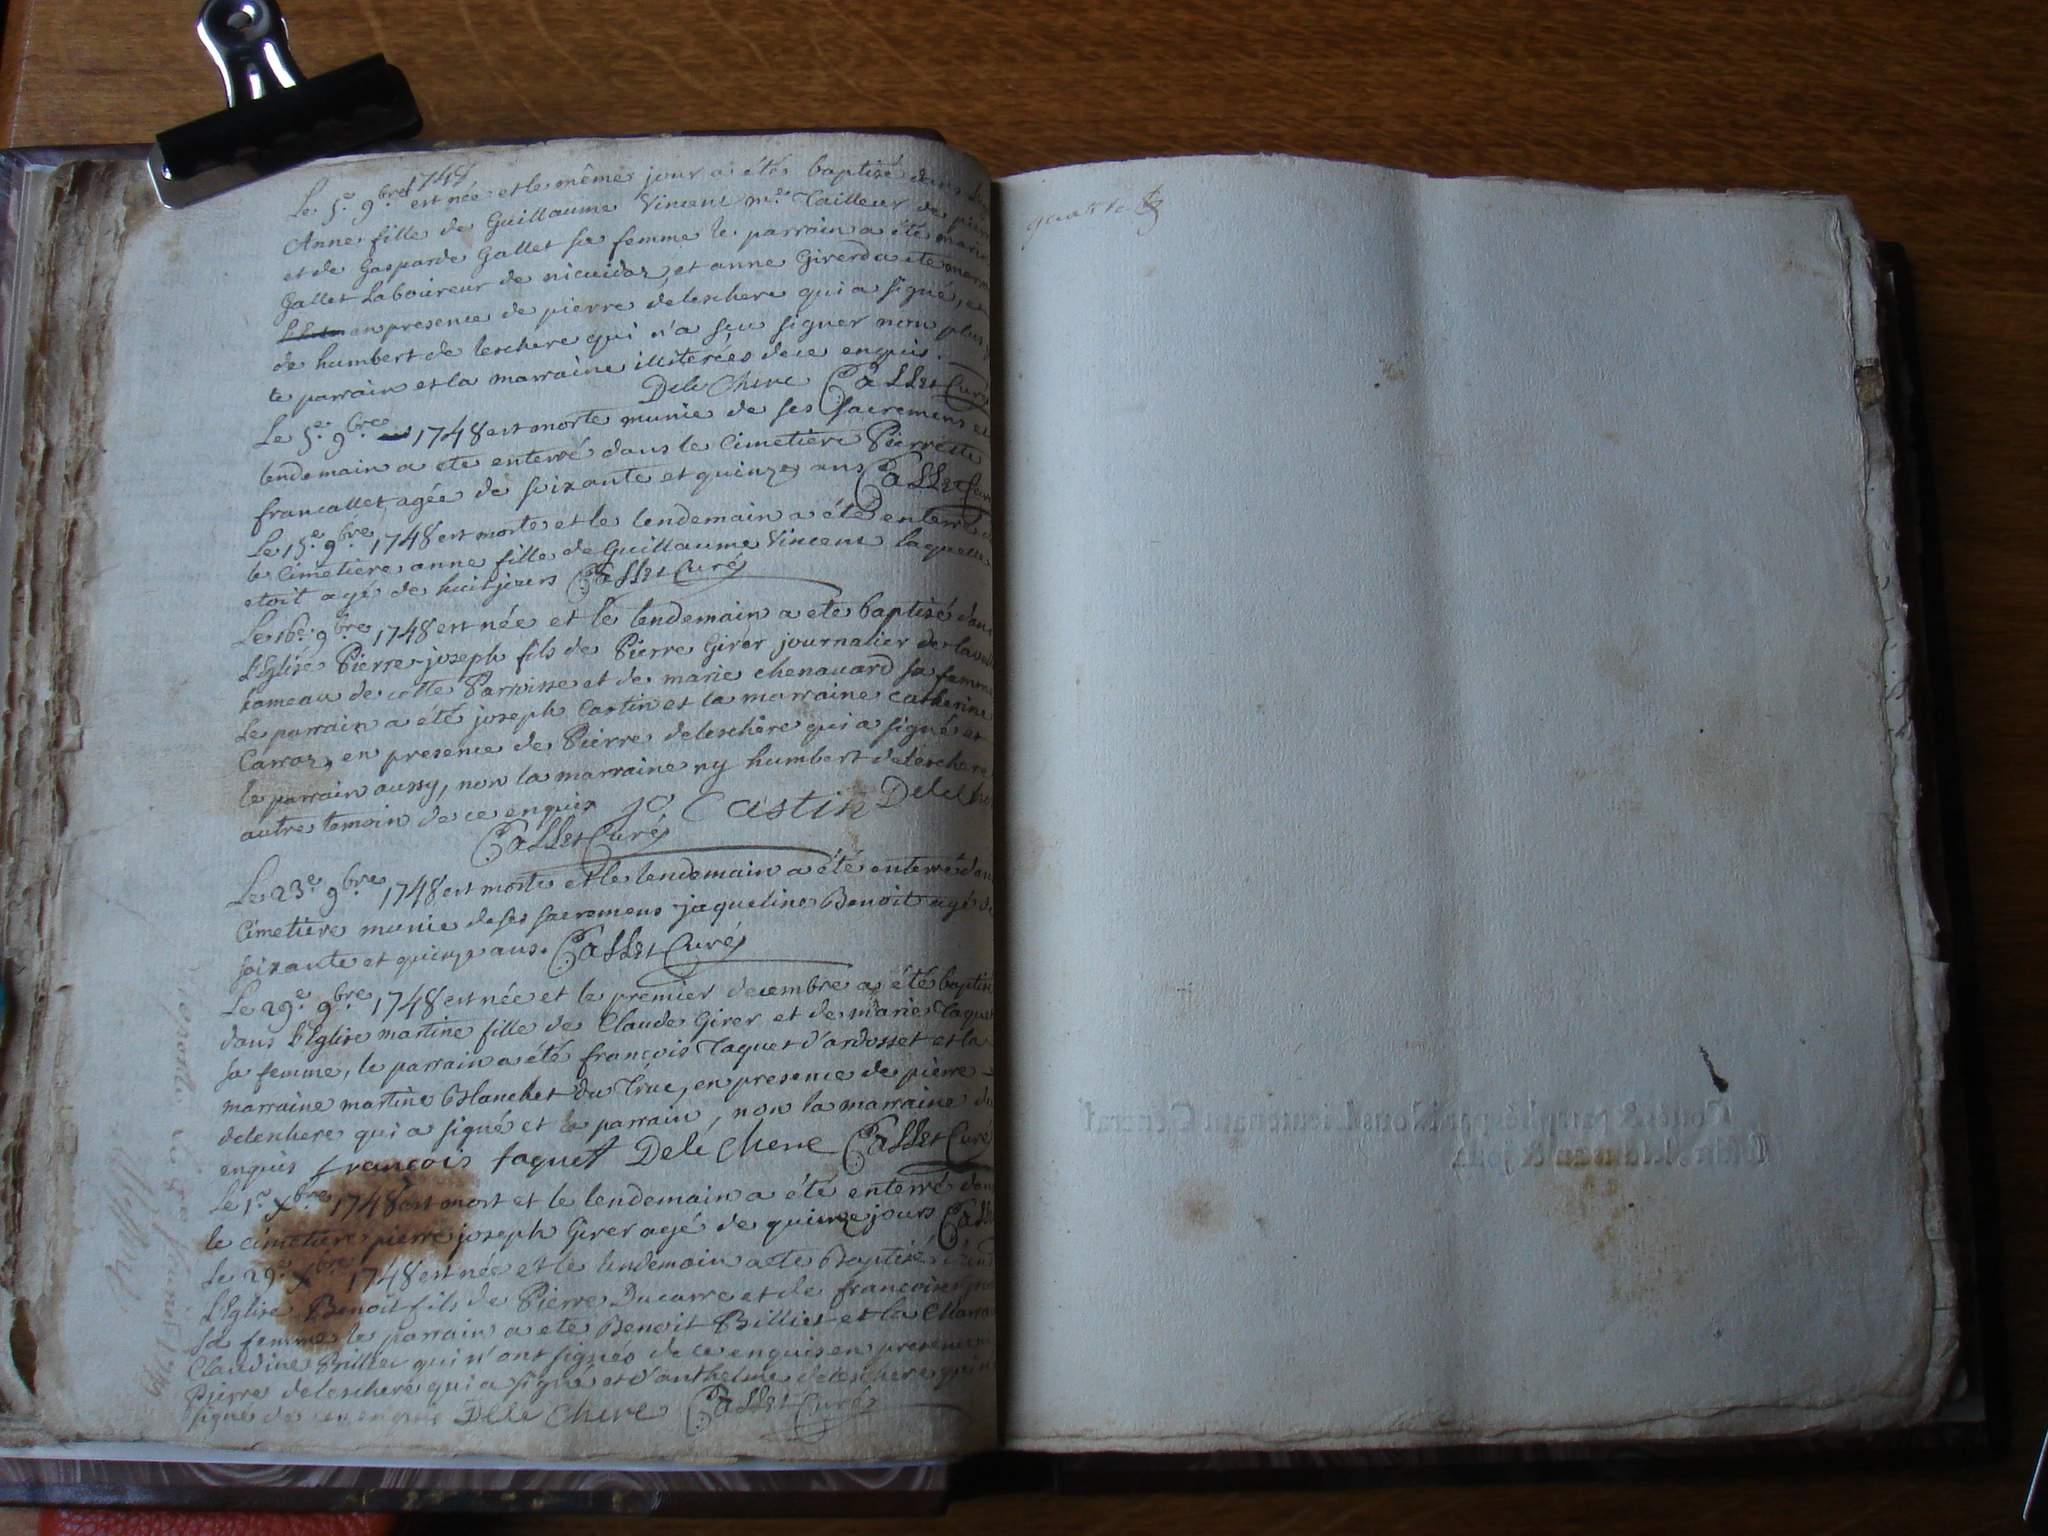 Le 5e 9bre 1748 est née et le même jour a étés baptisé dans
Anne fille de Guillaume Vincent me Tailleur de
et de Gasparde Gallet sa femme le parrain a été
Gallet Laboureur de et anne Girerd a été
en presence de pierre deleschere qui a signé, et
de humbert de leschere qui n'a sçu signer non plus
le parrain et la marraine illiterées de ce enquis.
Dele Chere Gallet Curé
Le 5e 9bre 1748 est morte munie de ses sacremens et
lendemain a ete enterré dans le Cimetière Pierrette
francallet agée de soixante et quinze ans Gallet Curé
Le 15e 9bre 1748 est morte et le lendemain a été enterré
le Cimetière anne fille de Guillaume Vincent laquelle
etoit agé de huit jours Gallet Curé
Le 16e 9bre 1748 est née et le lendemain a ete baptisé dans
L'Eglise Pierre-joseph fils de Pierre Girer journalier de
hameau de cette Parroisse et de marie chenavard sa femme
Le parrain a été joseph Castin et la marraine Catherine
Carraz, en presence de Pierre deleschère qui a signé et
le parrain aussy, non la marraine ny humbert deleschere
autre temoin de ce enquis jo Castin Dele Che
Gallet Curé
Le 23e 9bre 1748 est morte et le lendemain a été enterré dans
Cimetière munie de ses sacremens jaqueline Benoit agé de
soixante et quinze ans. Gallet Curé
Le 29e 9bre 1748 est née et le premier decembre a été baptisé
dans l'Eglise martine fille de Claude Girer et de marie Taquet
sa femme, le parrain a été françois Taquet d'ardosset et la
marraine martine Blanchet du Truc, en presence de pierre
deleschere qui a signé et le parrain, non la marraine de
enquis françois taquet Dele Chere Gallet Curé
Le 1er Xbre 1748 est mort et le lendemain a été enterré dans
le cimetière pierre joseph Girer agé de quinze jours Gall
Le 29e Xbre 1748 est née et le lendemain a ete Baptisé dans
L'Eglise Benoit fils de Pierre Ducarre et de francoise
sa femme le parrain a ete Benoit Billiet et la Marra
Claudine Billiet qui n'ont signés de ce enquis en presence
Pierre deleschere qui a signé et d'anthelme deleschere qui n
signé de ce enquis Dele Chere Gallet Curé
quatre
Cotté & paraphé par Nous Lieutenant General